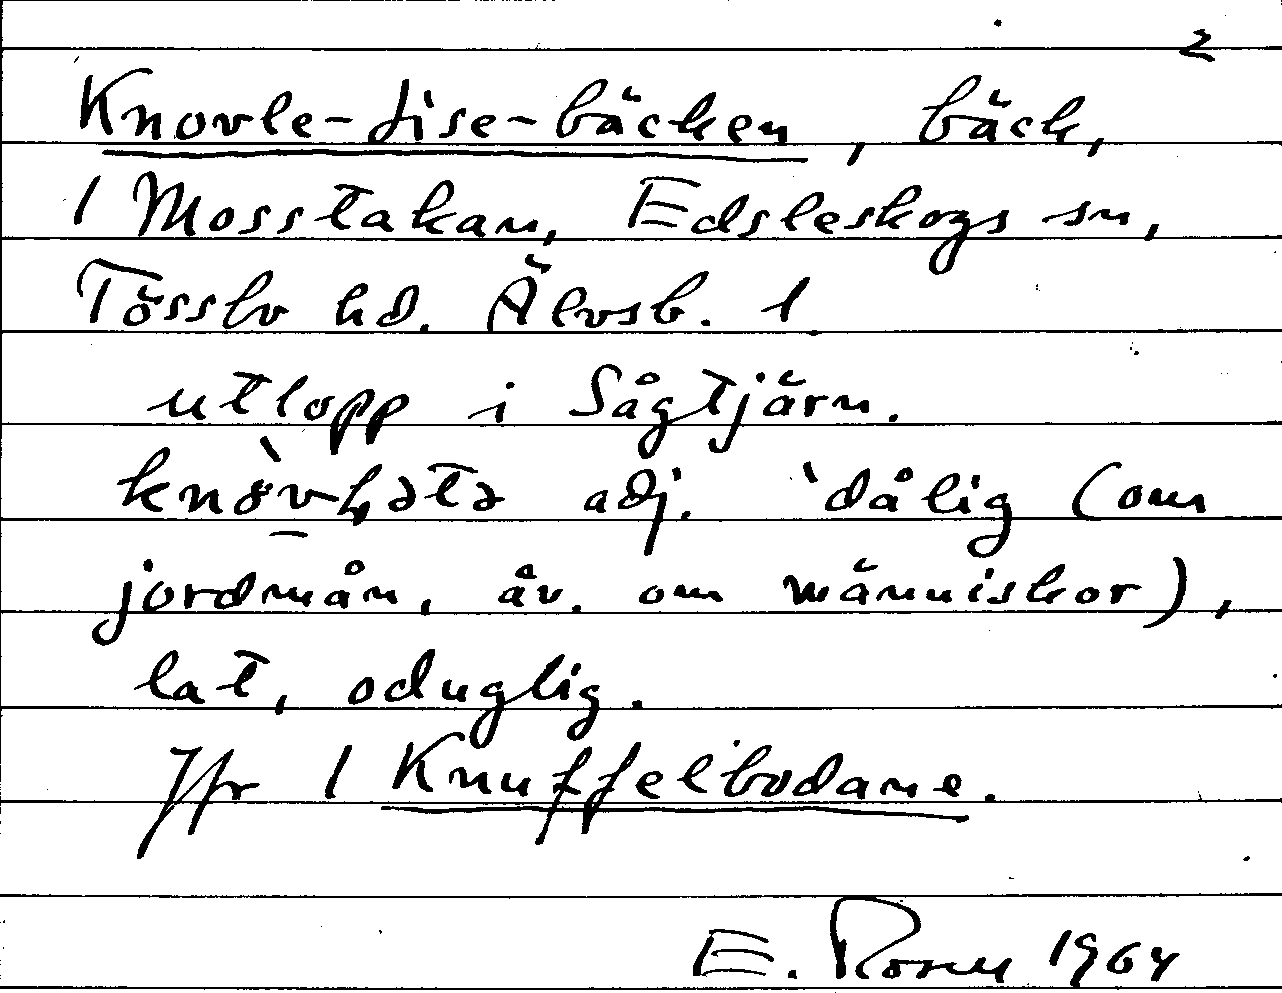 2
Knovle-Jise-bäcken, bäck,
1 Mosstakan, Edsleskogs sn,
Tössbo hd. Älvsb. l.
utlopp i Sågtjärn.
adj. 'dålig (om
jordmån, äv. om människor),
lat, oduglig.
Jfr 1 Knuffelbodane.
E. 1964